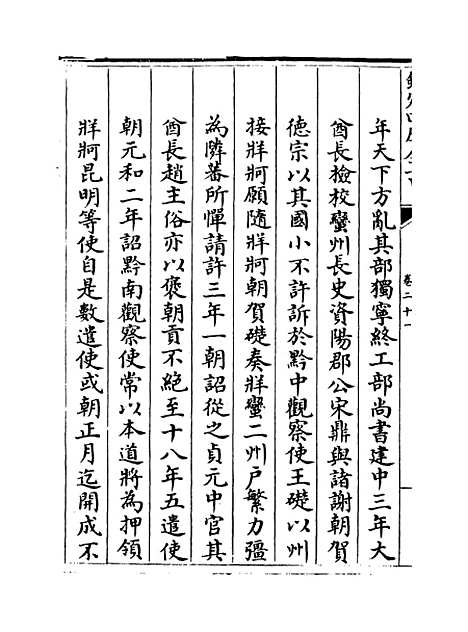 欽定四庫全書
卷二十一
年天下方亂其部獨寧終工部尚書建中三年大
酋長檢校蠻州長史資陽郡公宋鼎與諸謝朝賀
德宗以其國小不許訴於黔中觀察使王礎以州
接牂牁願隨牂牁朝賀礎奏牂蠻二州戶繁力彊
為隣蕃所憚請許三年一朝詔從之貞元中官其
酋長趙主俗亦以褒朝貢不絕至十八年五遣使
朝元和二年詔黔南觀察使常以本道將為押領
牂牁昆明等使自是數遣使或朝正月迄開成不